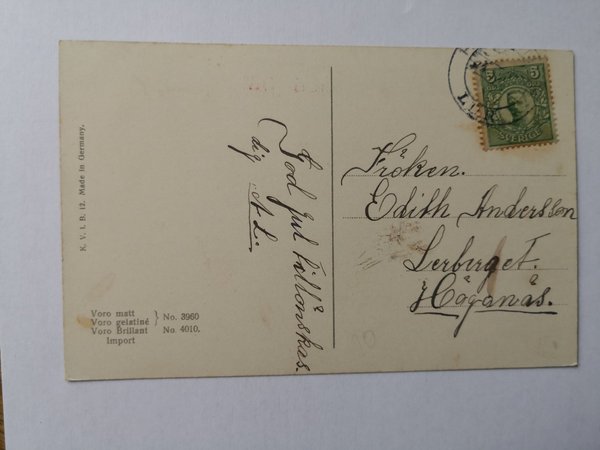 K. V. i. B. 12. Made in Germany.
Voro matt
Voro gelatiné } No. 3960
Voro Brillant No. 4010.
Import
God jul tillönskas
dig. A L.
5 5
SVERIGE
Fröken.
Edith Andersson
Lerberget.
Höganäs.